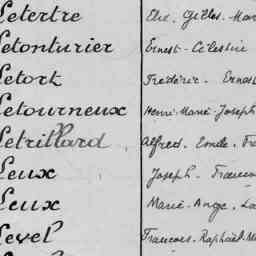 Letertre Elie. Gilles. Mar
Letonturier Ernest-Célestin
Letort Frédéric. Ernest
Letourneux Henri-Marie-Joseph
Letrillard Alfred. Emile. Fra
Leux Joseph. Francois
Leux Marie. Ange. Lo
Level Francois. Raphaël. M